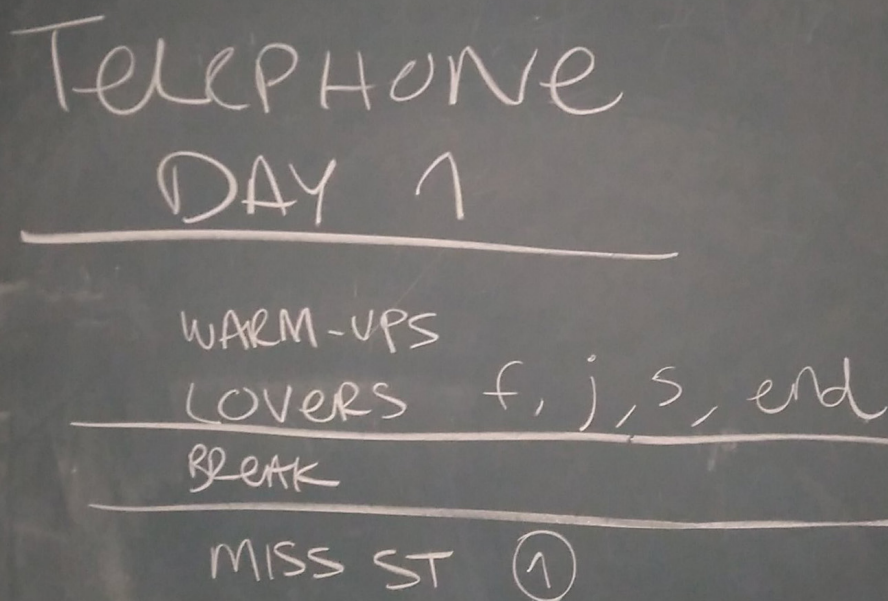 TeLePHONe
DAY 1
WARM-UPS
LOVeRS f, j, s, end
BReAK
MISS ST 1